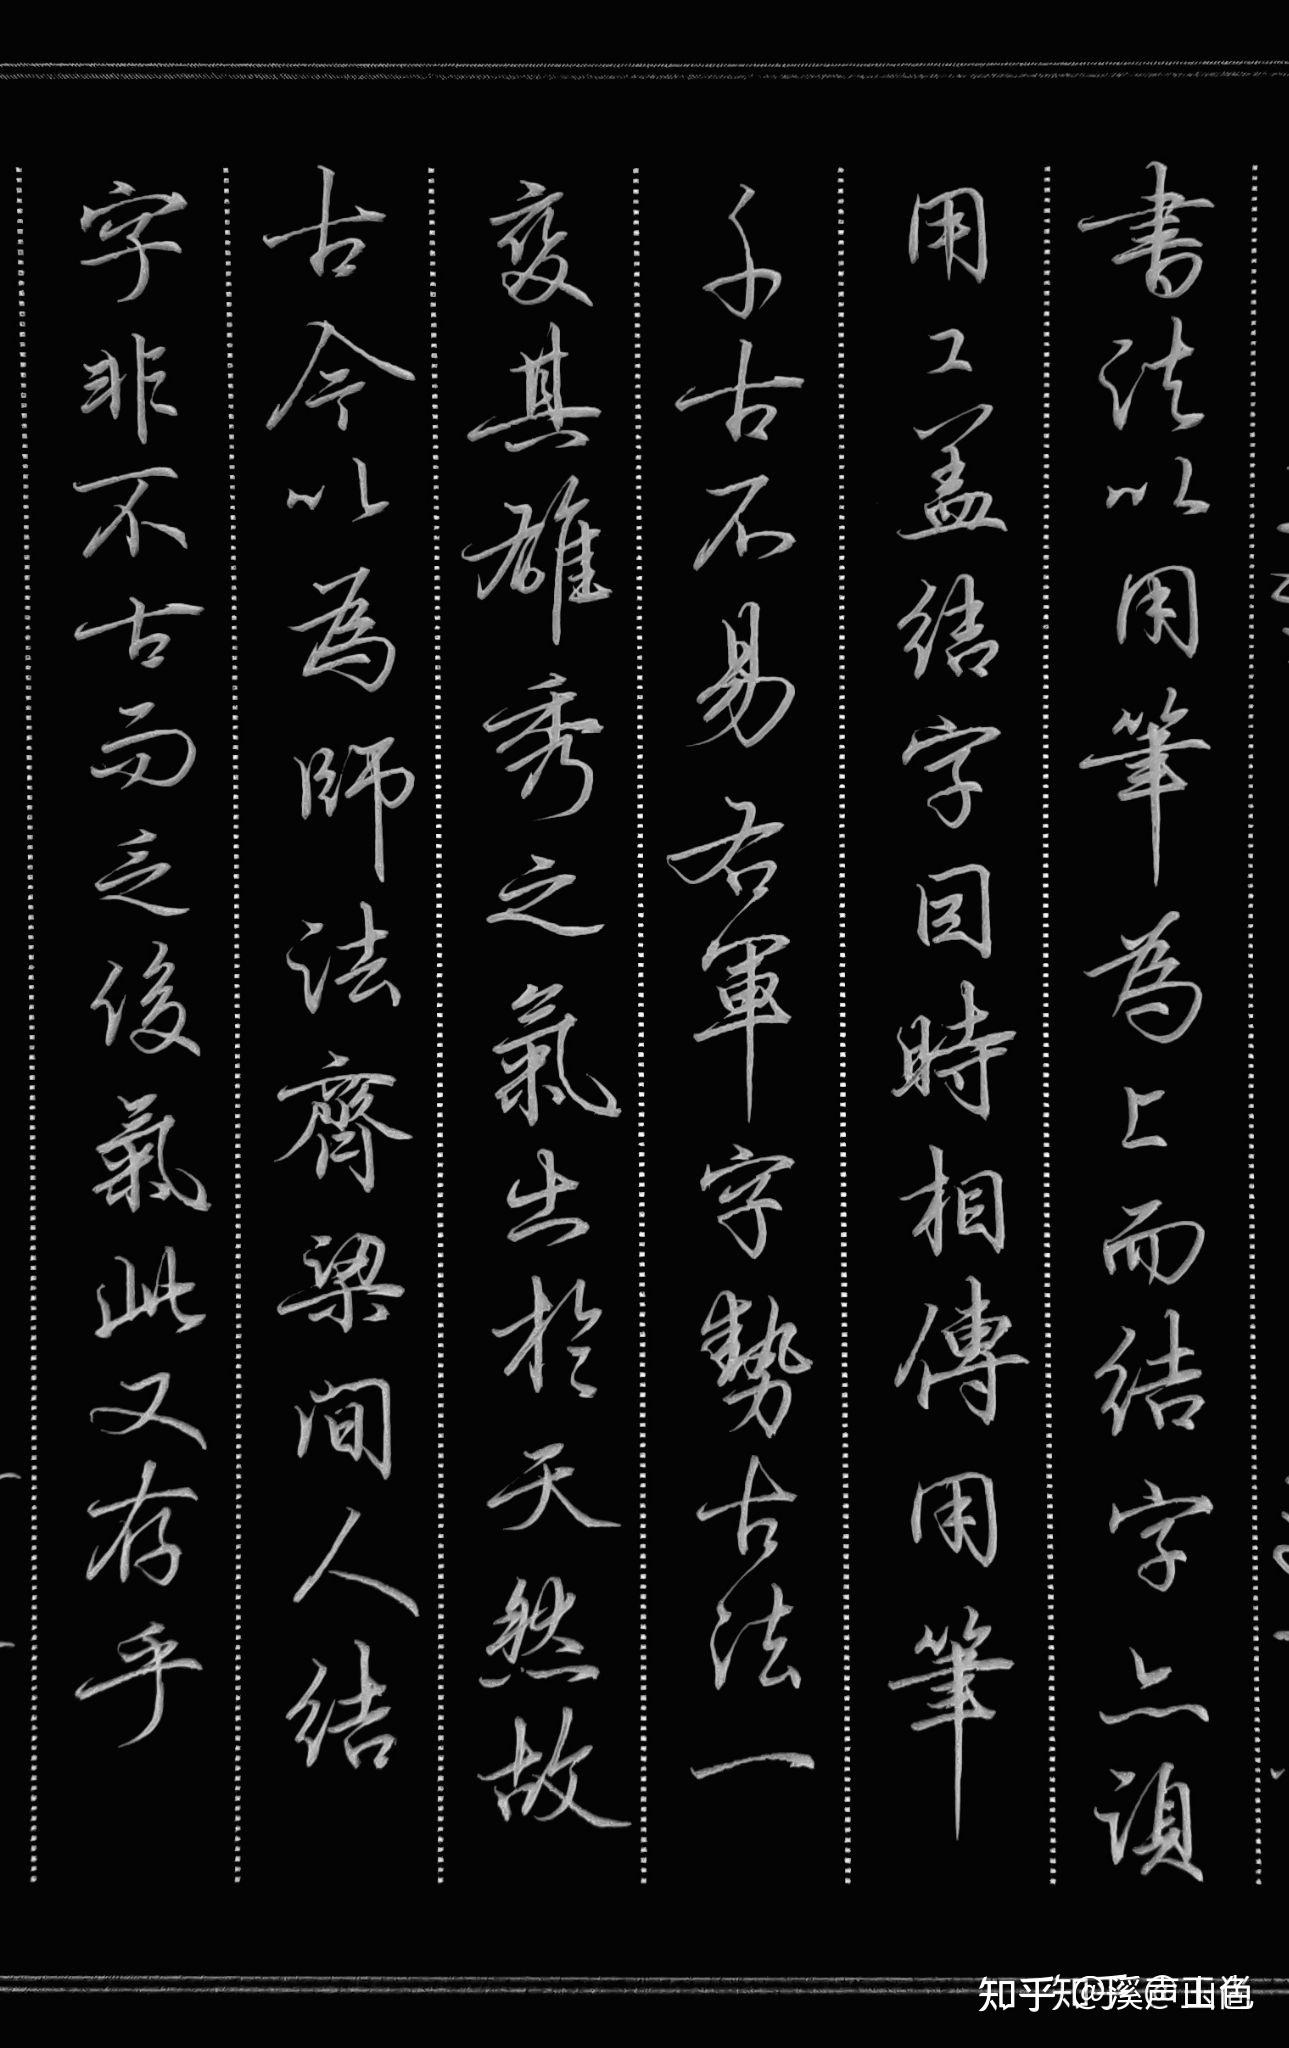 書法以用筆為上而結字亦須
用工蓋結字因時相傳用筆
千古不易右軍字勢古法一
變其雄秀之氣出於天然故
古今以為師法齊梁間人結
字非不古而乏俊氣此又存乎
知乎